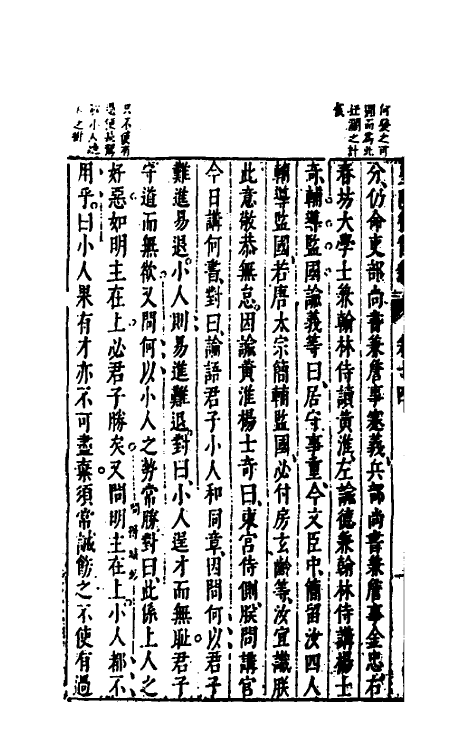 何發之可
開而爲此
狂瀾之計
哉
分仍命吏部尚書兼詹事蹇義兵部尚書兼詹事金忠右
春坊大學士兼翰林侍讀黃淮左諭德兼翰林侍講楊士
奇輔導監國諭義等曰居守事重今文臣中簡留汝四人
輔導監國若唐太宗簡輔監國必付房玄齡等汝宜識朕
此意敬恭無怠因諭黃淮楊士奇曰東宮侍側朕問講官
今日講何書對曰論語君子小人和同章因問何以君子
難進易退小人則易進難退對曰小人逞才而無恥君子
守道而無欲又問何以小人之勢常勝對曰此係上人之
好惡如明主在上必君子勝矣又問明主在上小人都不
用乎曰小人果有才亦不可盡棄須常誡飭之不使有過
問得味乾
只不使有
過便長駕
小人遠
之術